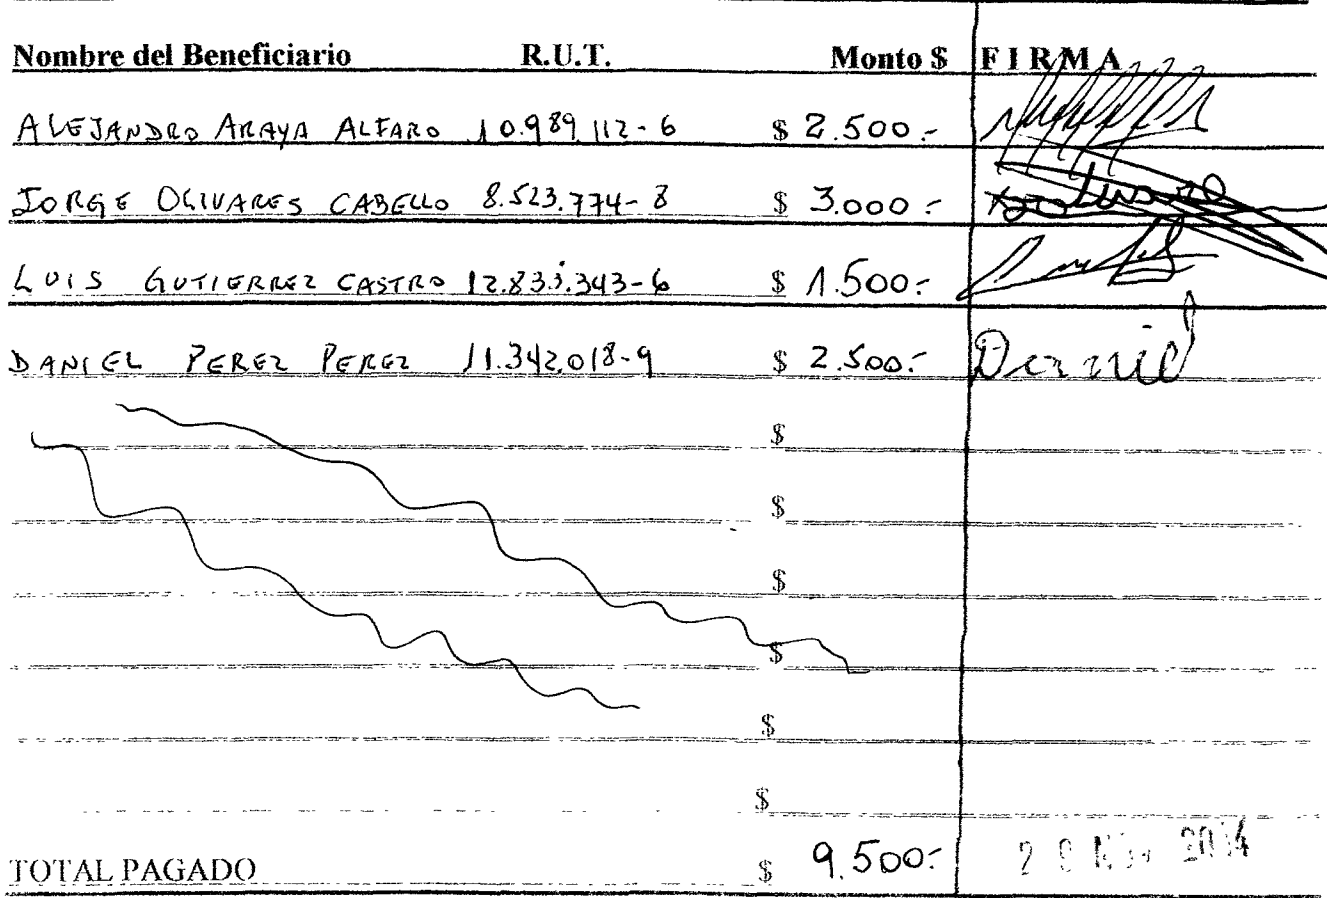 Nombre del Beneficiario R.U.T. Monto $ FIRMA
ALEJANDRO ARAYA ALFARO 10.989.112-6 $ 2.500.-
JORGE OLIVARES CABELLO 8.523.774-8 $ 3.000.-
LUIS GUTIERREZ CASTRO 12.833.343-6 $ 1.500.-
DANIEL PEREZ PEREZ 11.342.018-9 $ 2.500.- Daniel
$
$
$
$
$
$
TOTAL PAGADO $ 9.500.- 2014